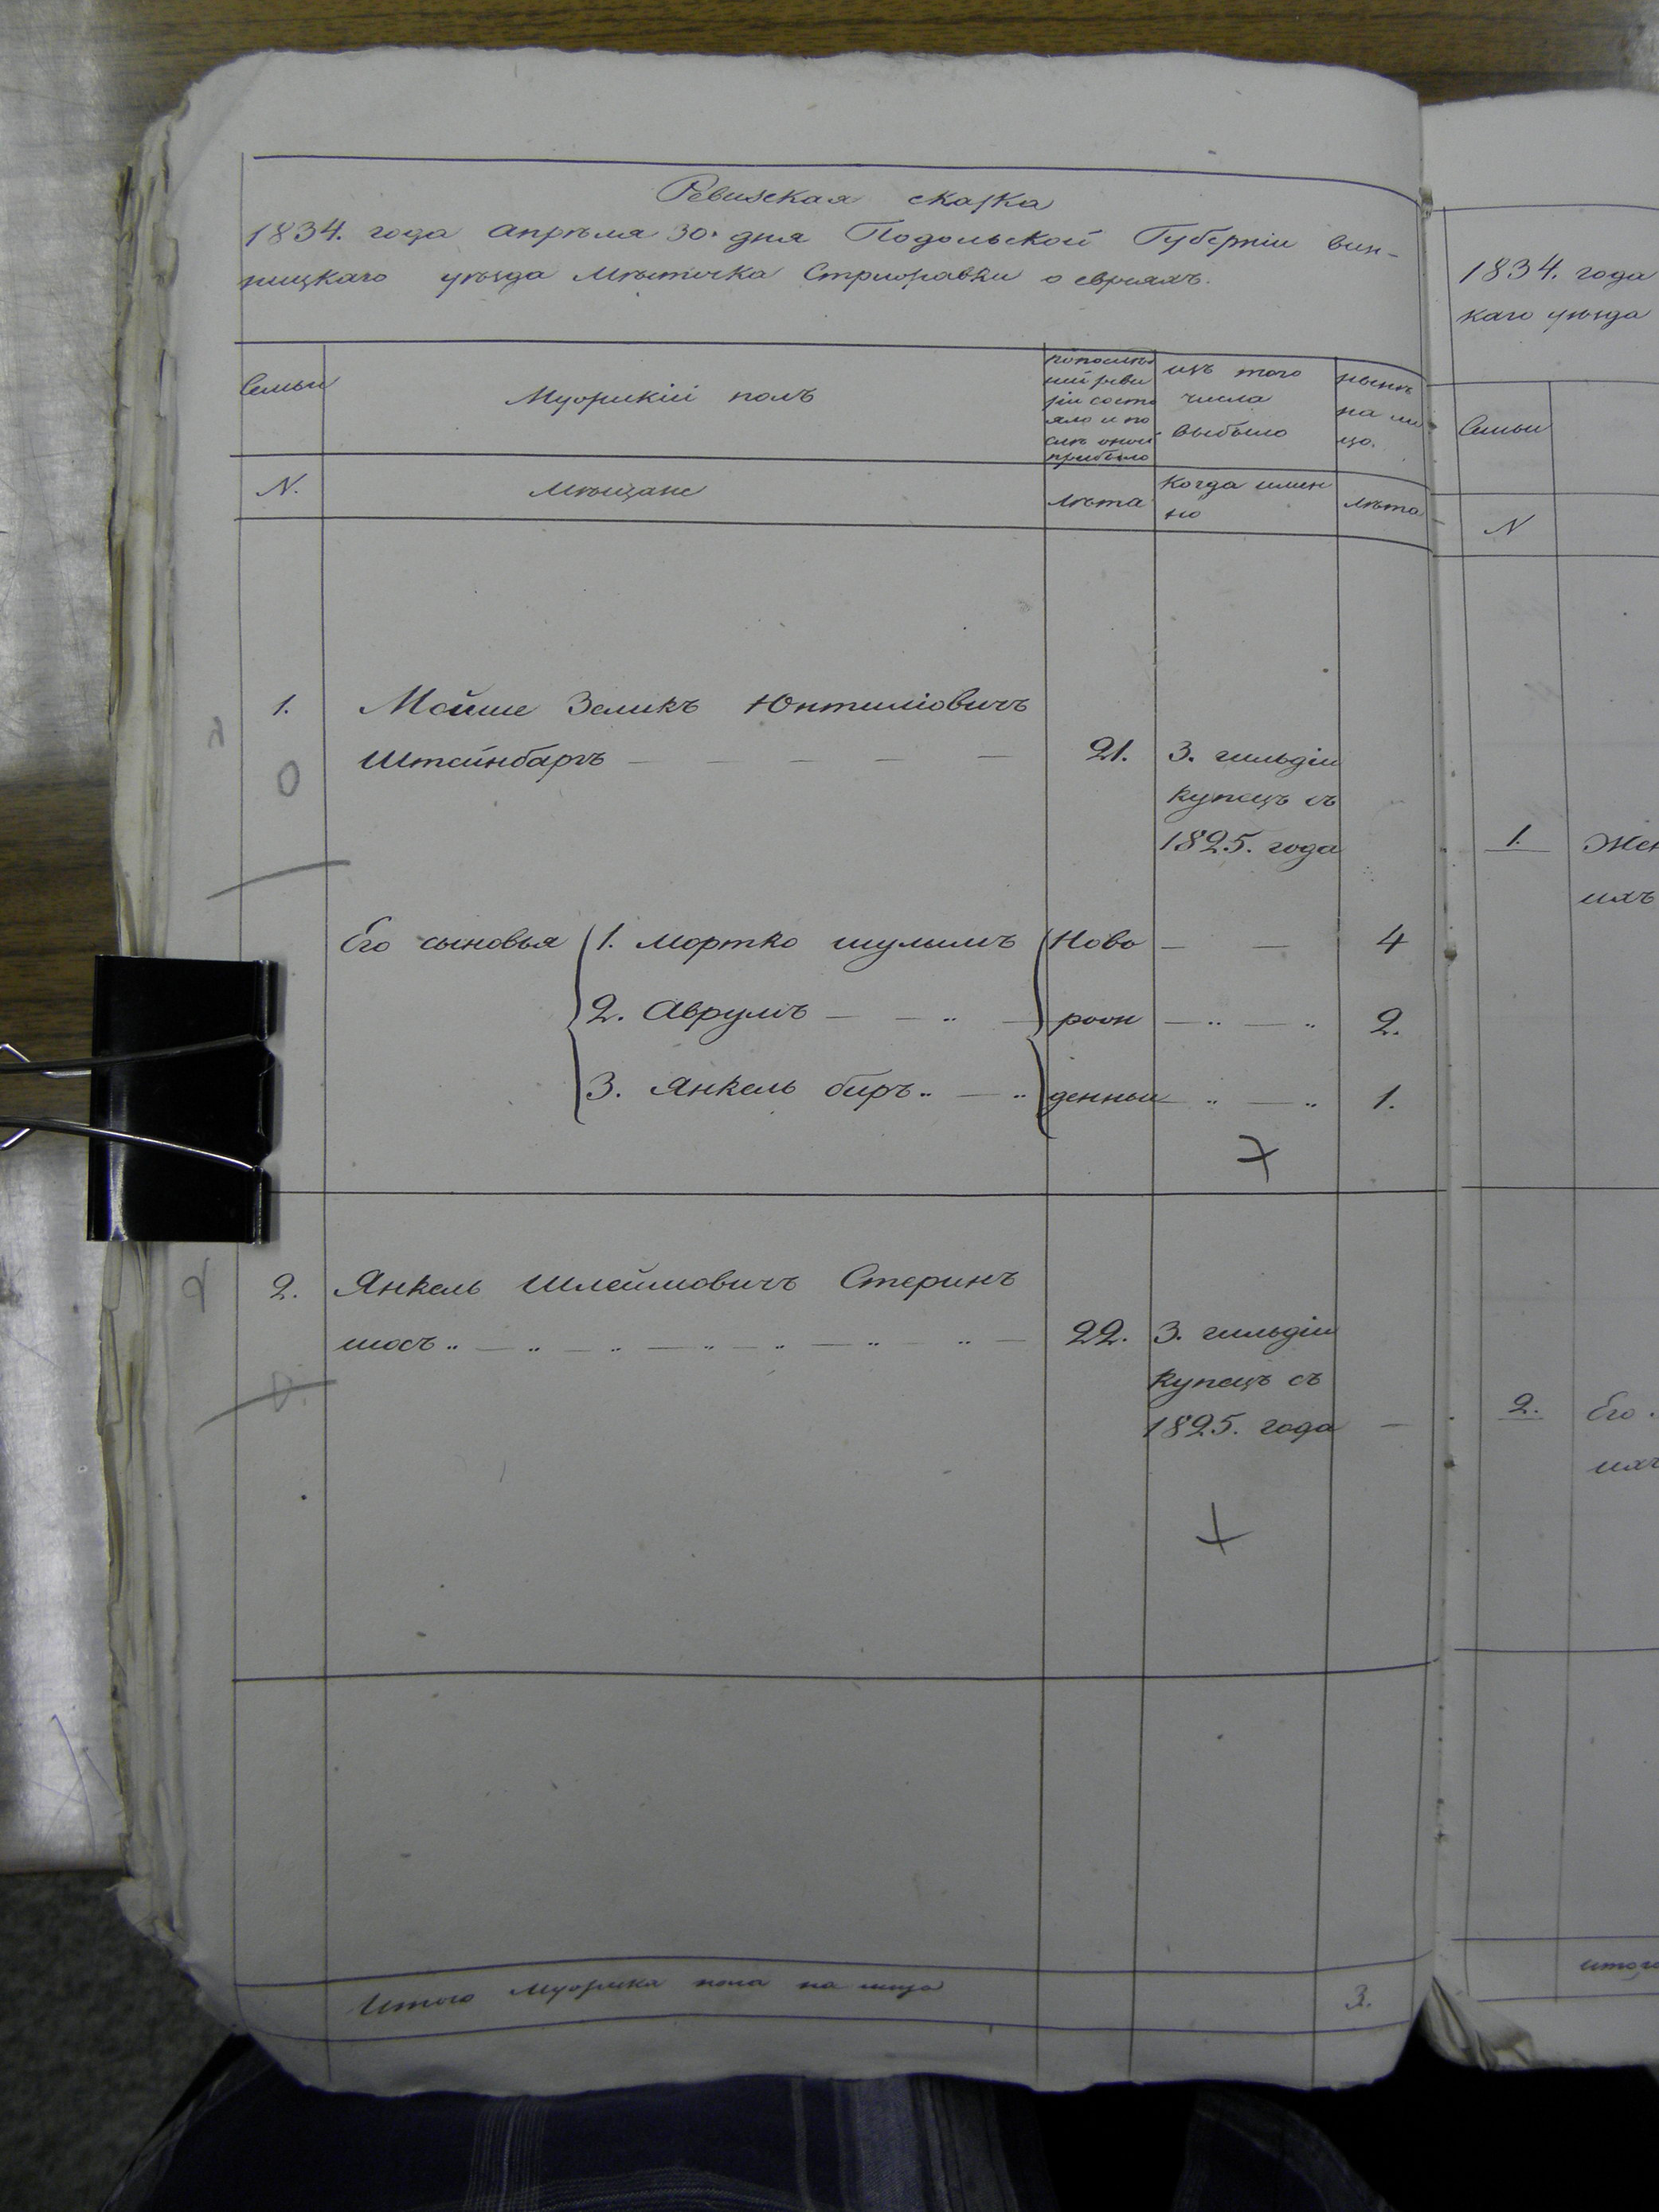 Ревизская сказка
1834. года апрѣля 30. дня Подольской Губерніи вин-
ницкаго уѣзда Мѣстечка Стрижавки о евреяхъ.
Семьи
Мужескій полъ
попослѣд
ній реви
зіи состо
яло и по
слѣ оной
прибыло
изъ того
числа
выбыло
нынѣ
на ли
цо.
N.
Мѣщане
лѣта
когда имен
но
лѣта
1. Мойше Зеликъ Юнтиліовичъ
Штейнбаргъ — — — — — 21. 3. гильдіи
купецъ съ
1825. года
Его сыновья 1. Мортко шулимъ Ново — — 4
2. Аврумъ — — „ — рожи — „ — „ 2.
3. Янкель беръ „ — „ денныи — „ — „ 1.
2. Янкель Шлеймовичъ Стерин
шосъ „ — „ — „ — „ — „ — „ — „ — 22. 3. гильдіи
купецъ съ
1825. года —
Итого мужеска пола на лицо 3.
1834. года
каго уѣзда
Семьи
N
1. Жен
ихъ
2. Его
ихъ
итого